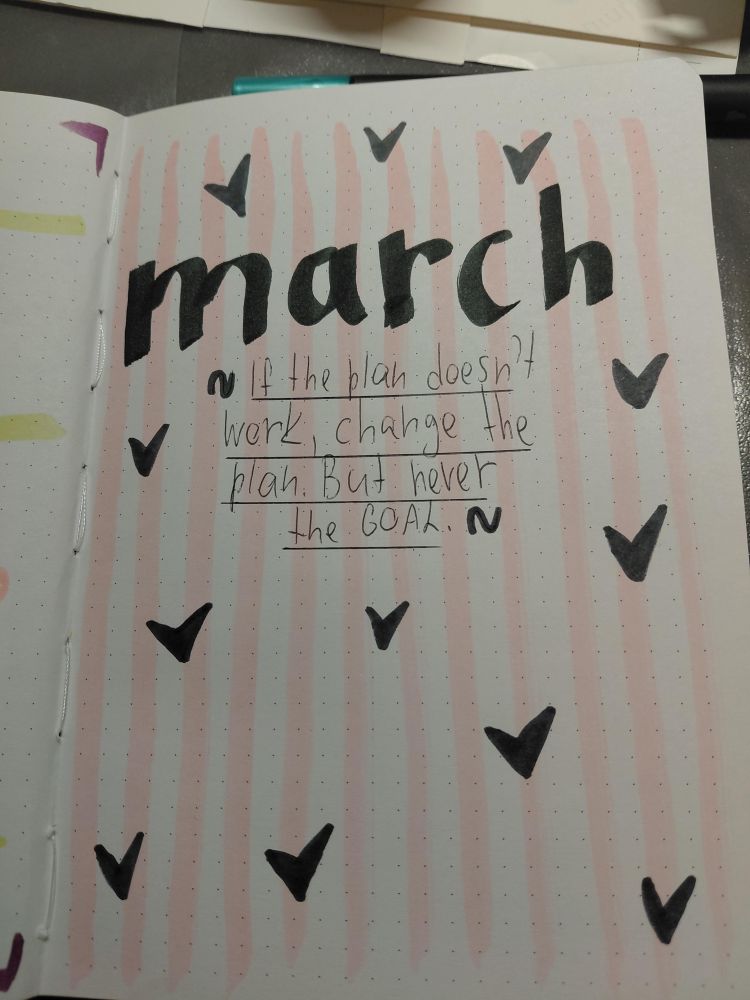 march
~ If the plan doesn't
work, change the
plan. But never
the GOAL. ~